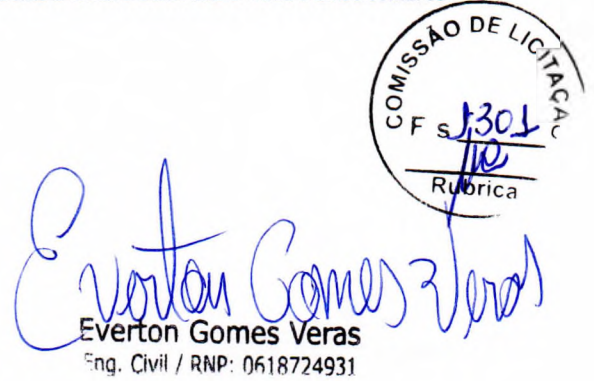 COMISSÃO DE LICITAÇÃ
F s 1301
Rubrica
Everton Gomes Veras
Everton Gomes Veras
Eng. Civil / RNP: 0618724931